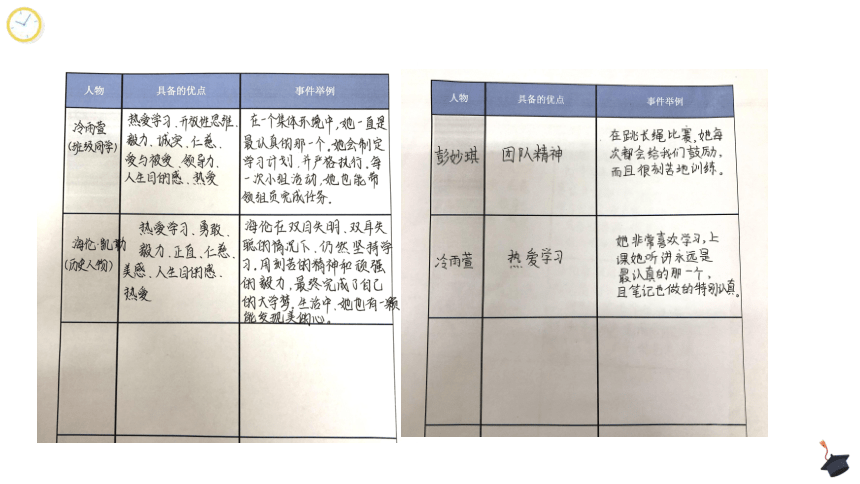 人物 具备的优点 事件举例
冷雨萱
(班级同学)
热爱学习、开放性思维、
毅力、诚实、仁慈、
爱与被爱、领导力、
人生目的感、热爱
在一个集体环境中,她一直是
最认真的那一个。她会制定
学习计划,并严格执行。每
一次小组活动,她也能带
领组员完成任务。
海伦·凯勒
(历史人物)
热爱学习、勇敢、
毅力、正直、仁慈、
美感、人生目的感、
热爱
海伦在双目失明、双耳失
聪的情况下,仍然坚持学
习,用刻苦的精神和顽强
的毅力,最终完成了自己
的大学梦,生活中,她也有一颗
能发现美的心。
人物 具备的优点 事件举例
彭妙琪
团队精神
在跳长绳比赛,她每
次都会给我们鼓励,
而且很刻苦地训练。
冷雨萱
热爱学习
她非常喜欢学习,上
课她听讲永远是
最认真的那一个,
且笔记也做的特别认真。